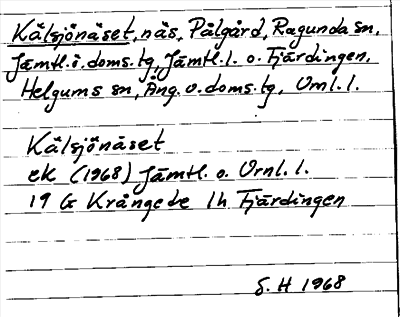 Kälsjönäset, näs, Pålgård, Ragunda sn,
Jämtl. ö. doms. tg, Jämtl. l. o. Fjärdingen,
Helgums sn, Ång. v. doms. tg, Vnl. l.
Kälsjönäset
ek (1968) Jämtl. o. Vrnl. l.
19 G Krångede 1h Fjärdingen
S. H 1968